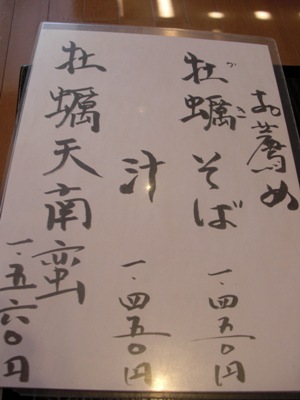 お薦め
牡蠣そば 一、四五〇円
汁 一、四五〇円
牡蠣天南蛮 一、五六〇円